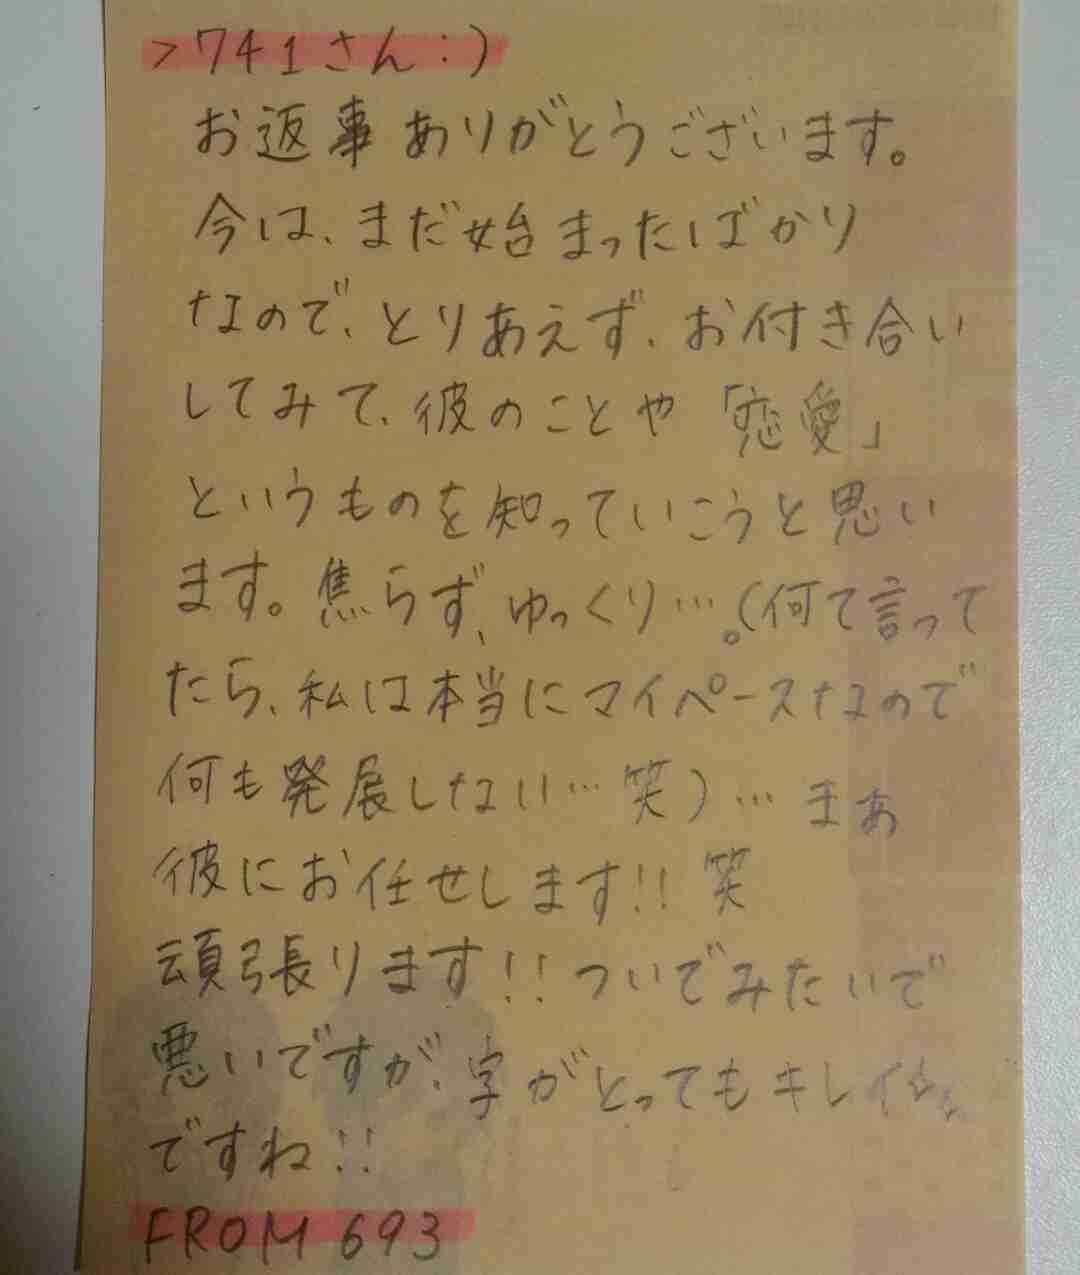 >741さん:)
お返事ありがとうございます。
今は、まだ始まったばかり
なので、とりあえず、お付き合い
してみて、彼のことや「恋愛」
というものを知っていこうと思い
ます。焦らず、ゆっくり…。(何て言って
たら、私は本当にマイペースなので
何も発展しない…笑)…まぁ
彼にお任せします!!笑
頑張ります!!ついでみたいで
悪いですが、字がとってもキレイ
ですね!!
FROM 693